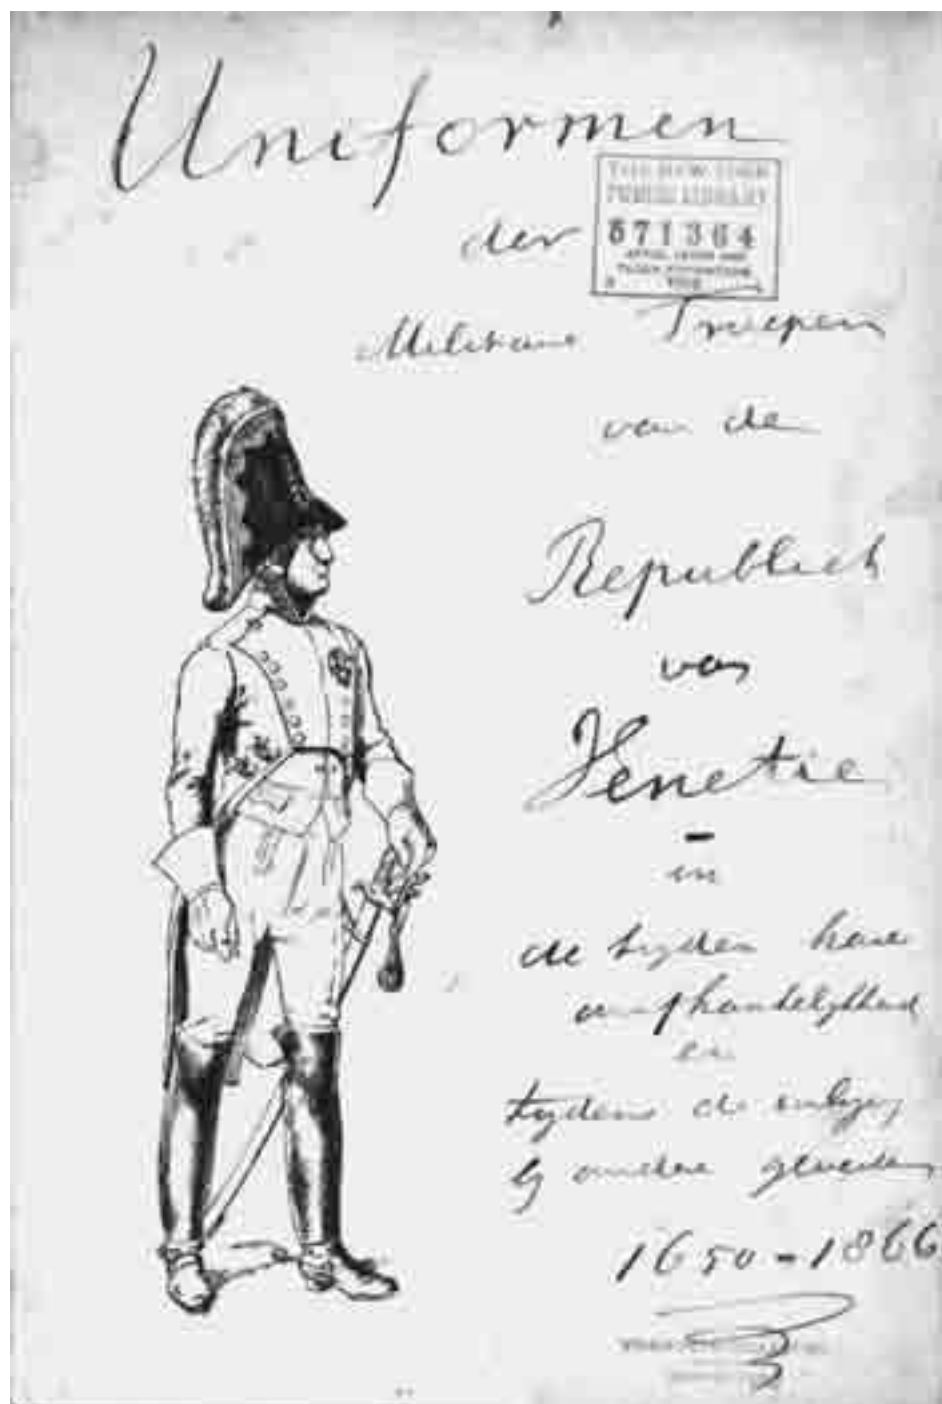 Uniformen
der
THE NEW YORK
PUBLIC LIBRARY
571364
ASTOR, LENOX AND
TILDEN FOUNDATIONS
Militaire Troepen
van de
Republiek
van
Venetie
-
in
de tyden harer
onafhankelykheid
en
tydens de
by andere
1650-1866